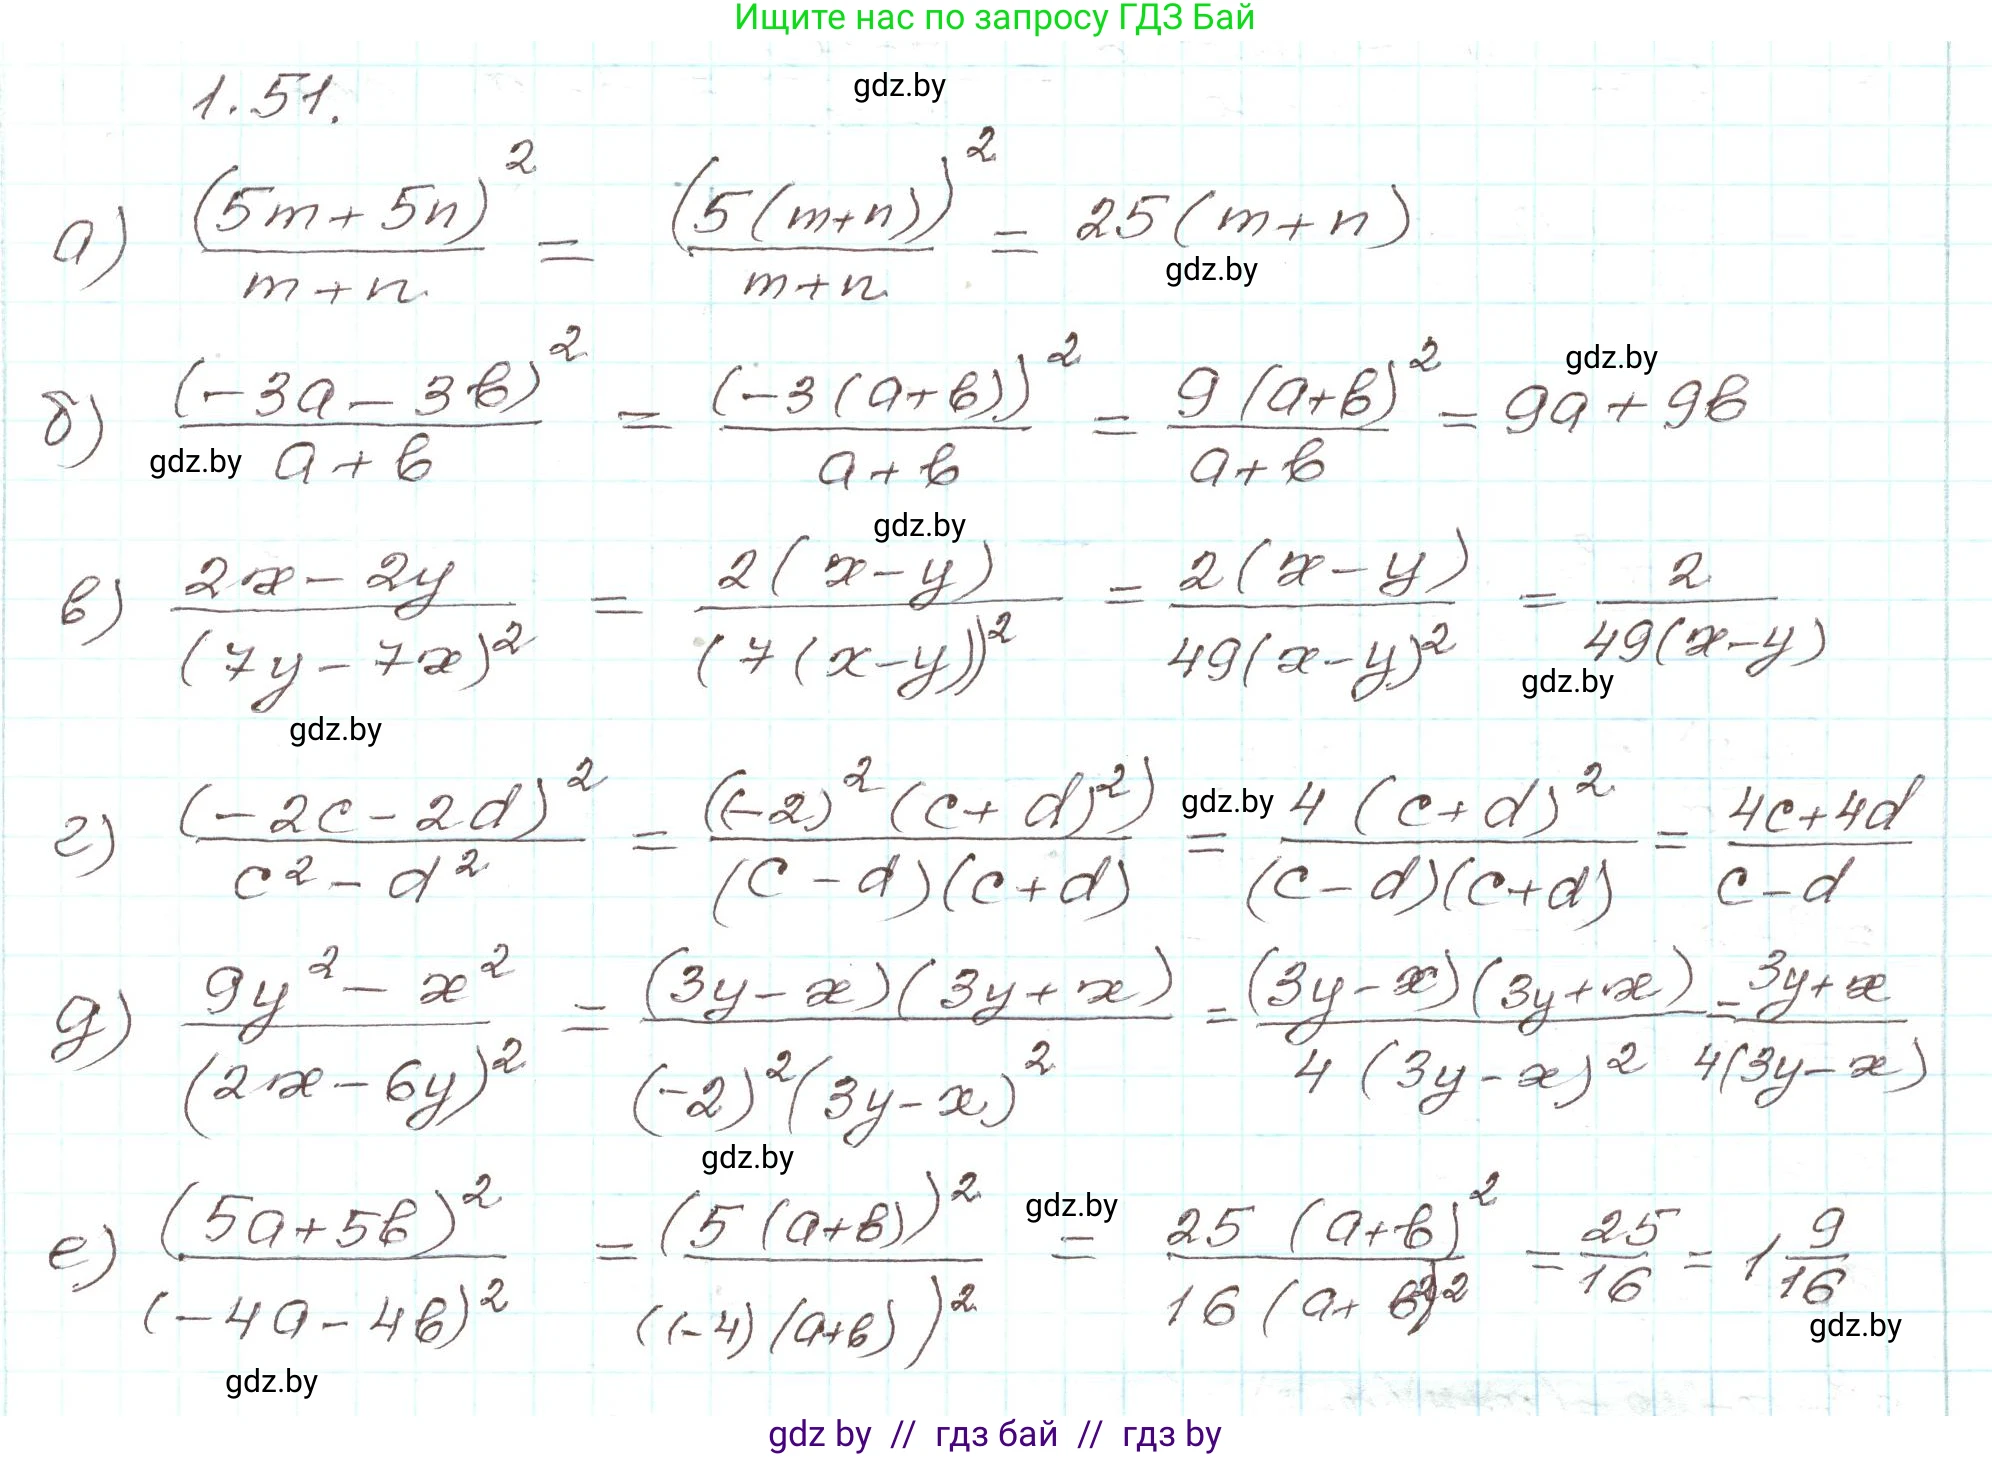 Ищите нас по запросу ГДЗ Бай
1.51.
gdz.by
а) (5m+5n)²/(m+n) = (5(m+n))²/(m+n) = 25(m+n)
gdz.by
б) (-3a-3b)²/(a+b) = (-3(a+b))²/(a+b) = 9(a+b)²/(a+b) = 9a+9b
gdz.by
gdz.by
gdz.by
в) (2x-2y)/(7y-7x)² = 2(x-y)/(7(x-y))² = 2(x-y)/49(x-y)² = 2/49(x-y)
gdz.by
gdz.by
г) (-2c-2d)²/(c²-d²) = ((-2)²(c+d)²)/(c-d)(c+d) = 4(c+d)²/(c-d)(c+d) = (4c+4d)/(c-d)
gdz.by
д) (9y²-x²)/(2x-6y)² = (3y-x)(3y+x)/(-2)²(3y-x)² = (3y-x)(3y+x)/4(3y-x)² = (3y+x)/4(3y-x)
gdz.by
е) (5a+5b)²/(-4a-4b)² = (5(a+b))²/((-4)(a+b))² = 25(a+b)²/16(a+b)² = 25/16 = 1 9/16
gdz.by
gdz.by
gdz.by
gdz by // гдз бай // гдз by